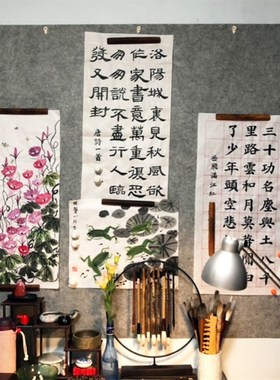 洛陽城裏見秋風欲
作家書意萬重復恐
匆匆説不盡行人臨
發又開封
唐詩一首
三十功名塵與土八千
里路雲和月莫等閒白
了少年頭空悲
岳飛滿江紅